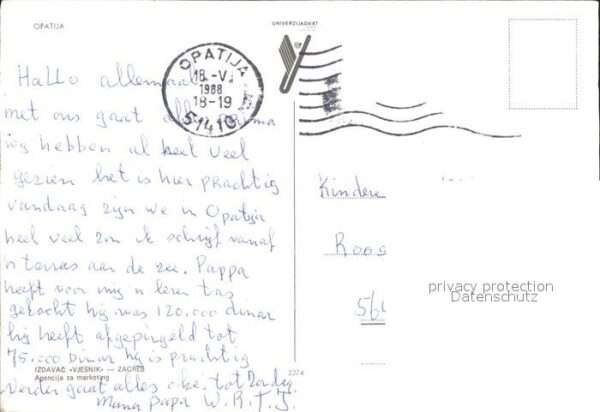 OPATIJA
UNIVERZIJADA 87
OPATIJA
18.-VI
1988
18-19
51410
Hallo allemaal
met ons gaat alles prima
wij hebben al heel veel
gezien het is hier prachtig
vandaag zijn we in Opatija
heel veel zon ik schrijf vanaf
'n terras aan de zee. Pappa
heeft voor mij 'n leren tas
gekocht hij was 120.000 dinar
hij heeft afgepingeld tot
75.000 dinar hij is prachtig
verder gaat alles oke. tot Zondag.
Mama papa W.R.T.J.
IZDAVAČ «VJESNIK» — ZAGREB
Agencija za marketing
3274
Kindere
Roos
56
privacy protection
Datenschutz